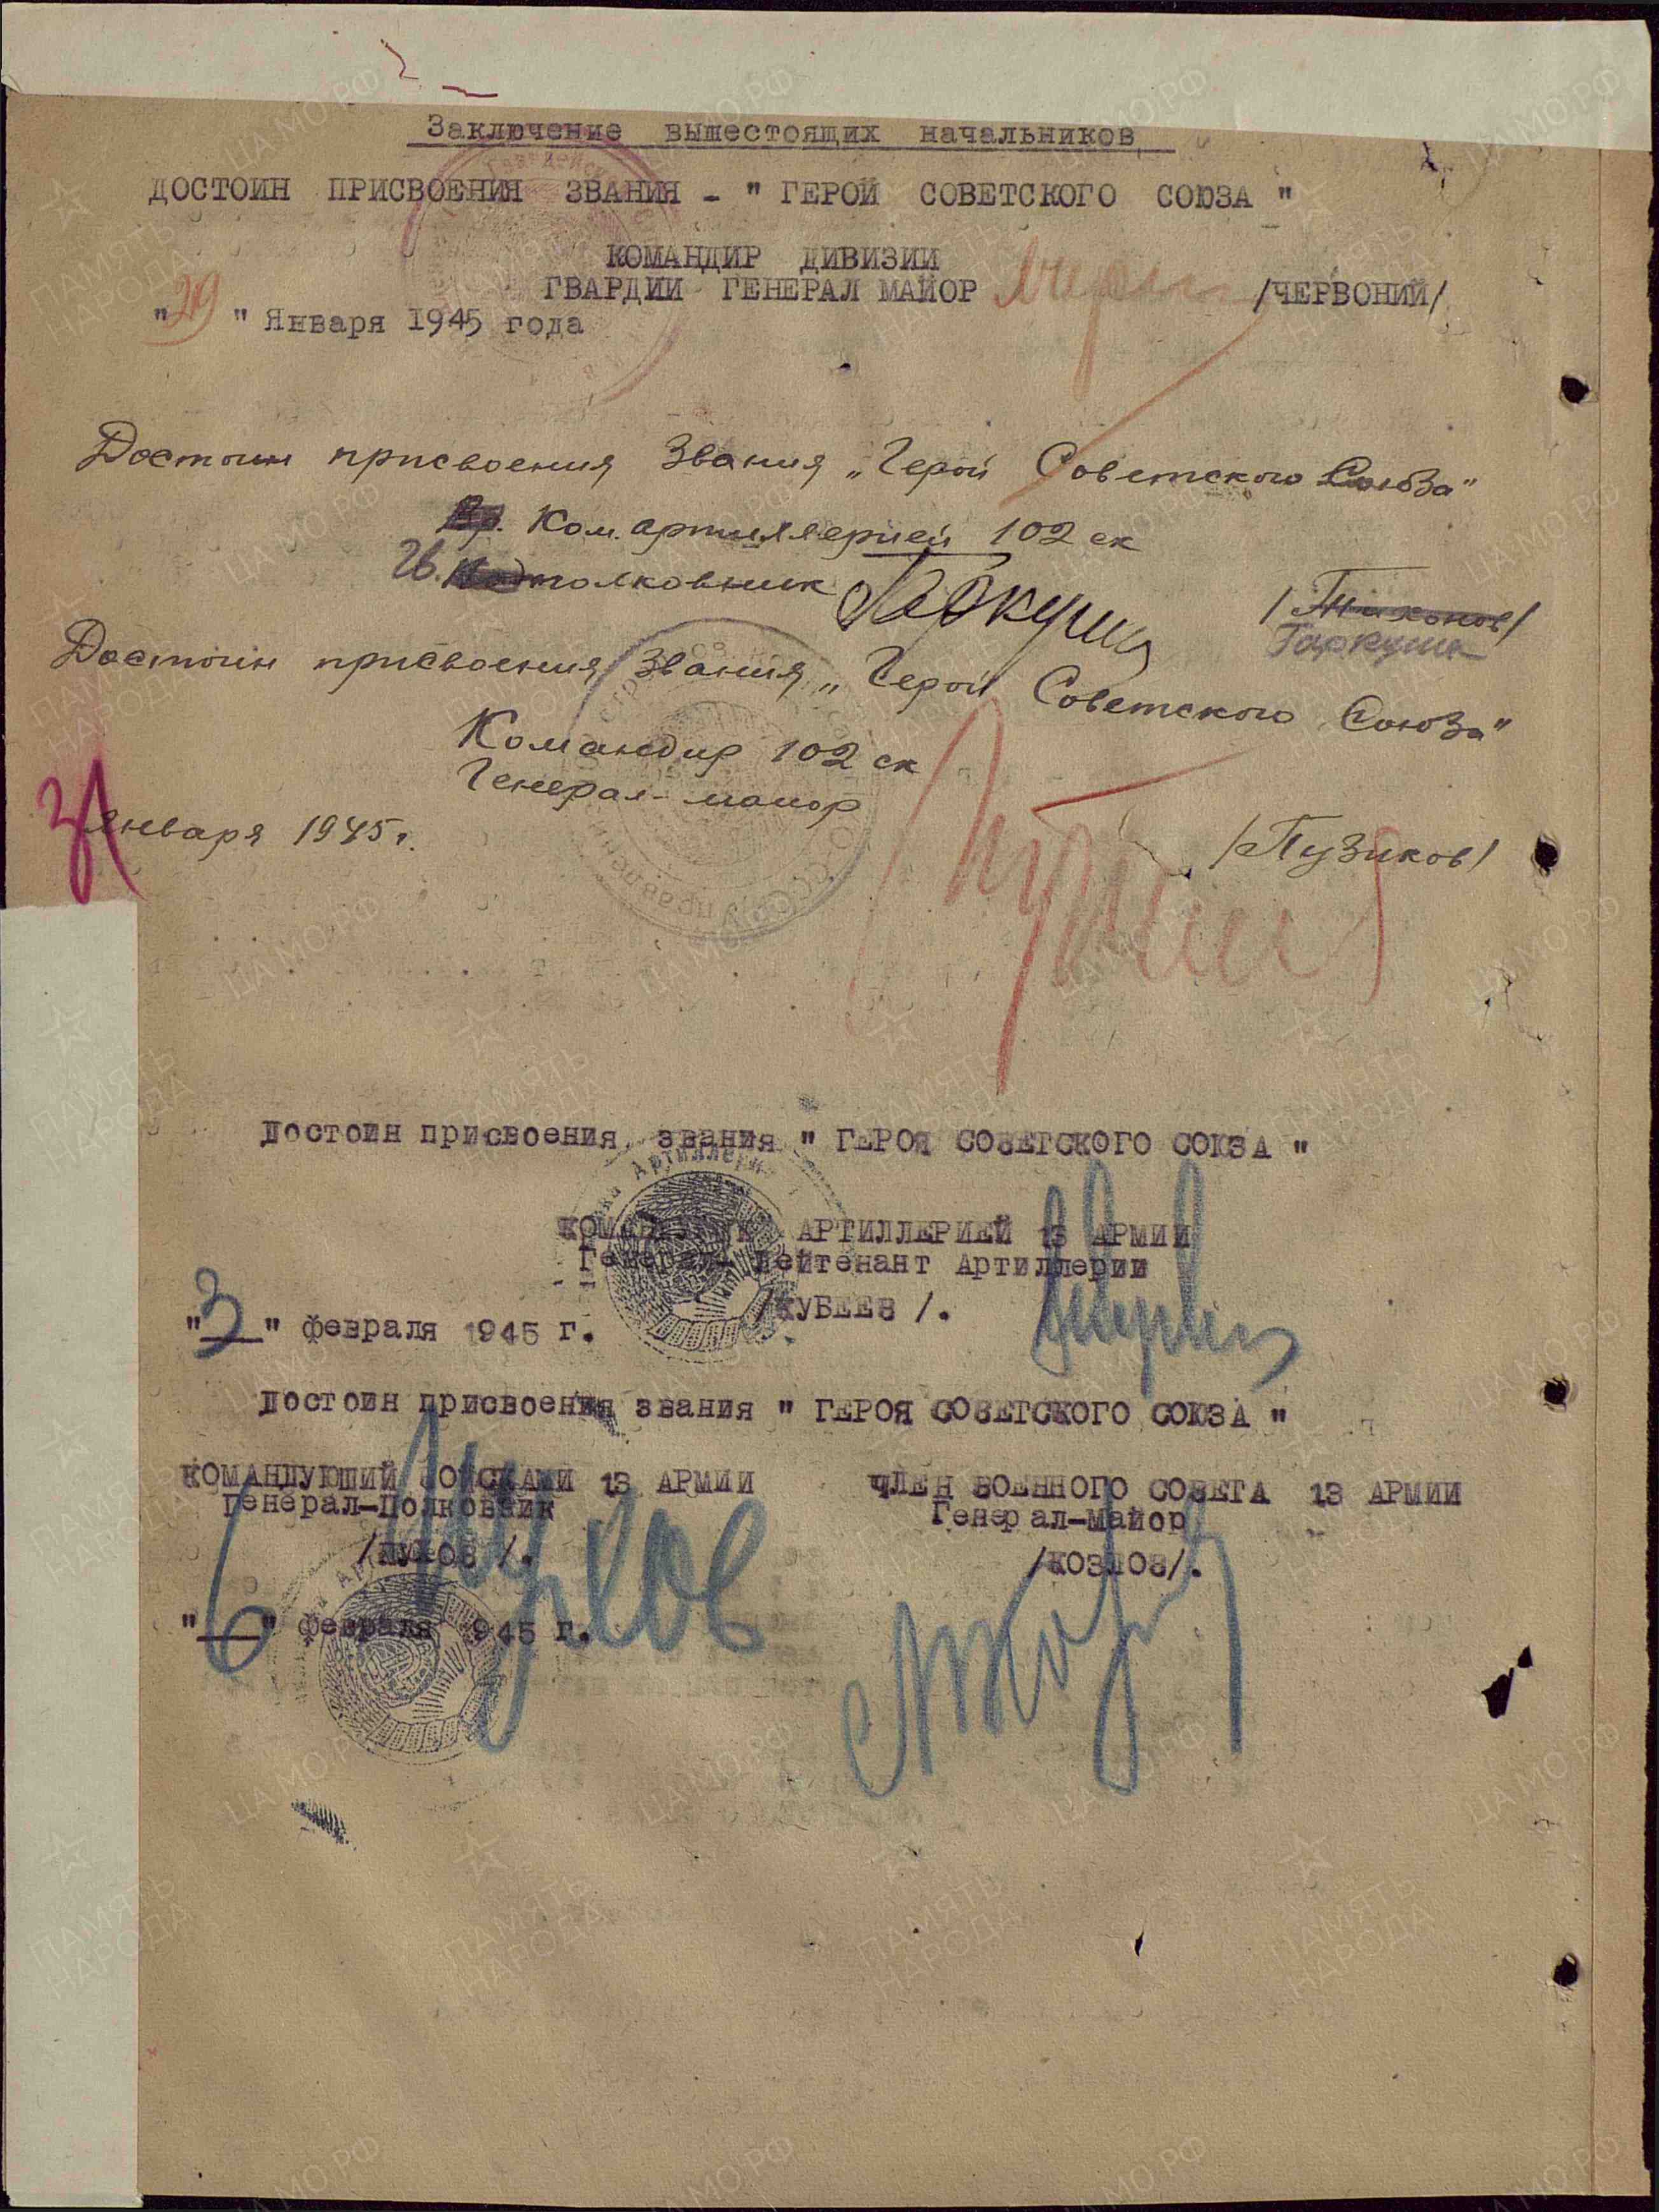 Заключение вышестоящих начальников
ДОСТОИН ПРИСВОЕНИЯ ЗВАНИЯ - " ГЕРОЙ СОВЕТСКОГО СОЮЗА "
КОМАНДИР ДИВИЗИИ
ГВАРДИИ ГЕНЕРАЛ МАЙОР /ЧЕРВОНИЙ/
"29" Января 1945 года
Достоин присвоения Звания „Герой Советского Союза"
Вр. Ком. артиллерией 102 ск
Гв. Подполковник Гаркуша /Тихонов/
Гаркуша
Достоин присвоения Звания „Герой Советского Союза"
Командир 102 ск
Генерал-майор
31 Января 1945 г. /Пузиков/
Достоин присвоения звания " ГЕРОЯ СОВЕТСКОГО СОЮЗА "
КОМАНДУЮЩ АРТИЛЛЕРИЕЙ 13 АРМИИ
Генерал-Лейтенант Артиллерии
/КУБЕЕВ /.
"3" февраля 1945 г.
Достоин присвоения звания " ГЕРОЯ СОВЕТСКОГО СОЮЗА "
КОМАНДУЮЩИЙ ВОЙСКАМИ 13 АРМИИ ЧЛЕН ВОЕННОГО СОВЕТА 13 АРМИИ
Генерал-Полковник Генерал-Майор
/ПУХОВ /. /КОЗЛОВ/.
"6" февраля 1945 г.
ПАМЯТЬ НАРОДА
ЦАМО.РФ